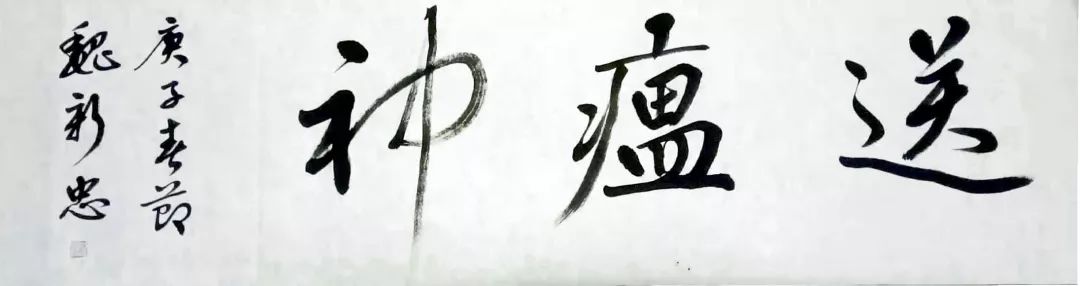 送瘟神
庚子春節
魏新忠